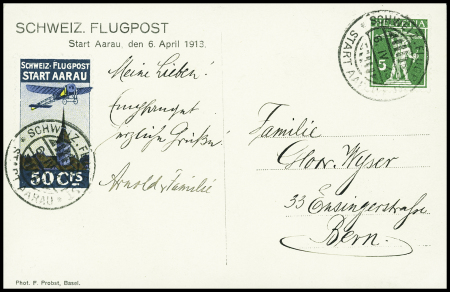 SCHWEIZ. FLUGPOST
Start Aarau, den 6. April 1913.
SCHWEIZ. FLUGPOST
START AARAU
50 Cts
Meine Lieben!
Empfanget
herzliche Grüße!
Arnold & Familie
HELVETIA
5
Familie
Wyser
33 Ensingerstraße
Bern.
Phot. F. Probst, Basel.